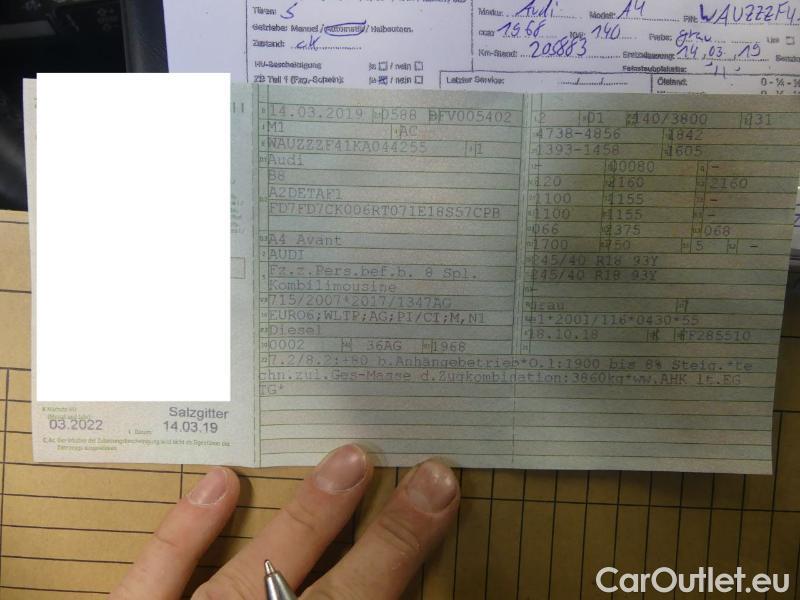 Türen: 5
Getriebe: Manuel / Automatik / Halbautom.
Zustand: ok
HU-Bescheinigung ja / nein
ZB Teil 1 (Fzg.-Schein): ja / nein
Marke: Audi Modell: A4 FIN: WAUZZZF4
ccm: 1968 KW: 140 Farbe: grau
Km-Stand: 200883 Erstzulassung: 14.03.19
Letzter Service: Ölstand:
14.03.2019 0588 BFV005402
M1 AC
WAUZZZF41KA044255 1
Audi
B8
A2DETAF1
FD7FD7CK006RT071E18S57CPB
A4 Avant
AUDI
Fz.z.Pers.bef.b. 8 Spl.
Kombilimousine
715/2007*2017/1347AG
EURO6;WLTP;AG;PI/CI;M,N1
Diesel
0002 36AG 1968
01 140/3800 231
4738-4856 1842
1393-1458 1605
- 00080 -
120 2160 2160
1100 1155 -
1100 1155 -
066 2375 068
1700 750 5 -
245/40 R18 93Y
245/40 R18 93Y
-
grau
e1*2001/116*0430*55
18.10.18 FF285510
7.2/8.2:+80 b.Anhängebetrieb*O.1:1900 bis 8% Steig.*te
chn.zul.Ges-Masse d.Zugkombination:3860kg*ww.AHK lt.EG
TG*
Nächste HU
(Monat und Jahr)
03.2022
Salzgitter
Datum: 14.03.19
CarOutlet.eu